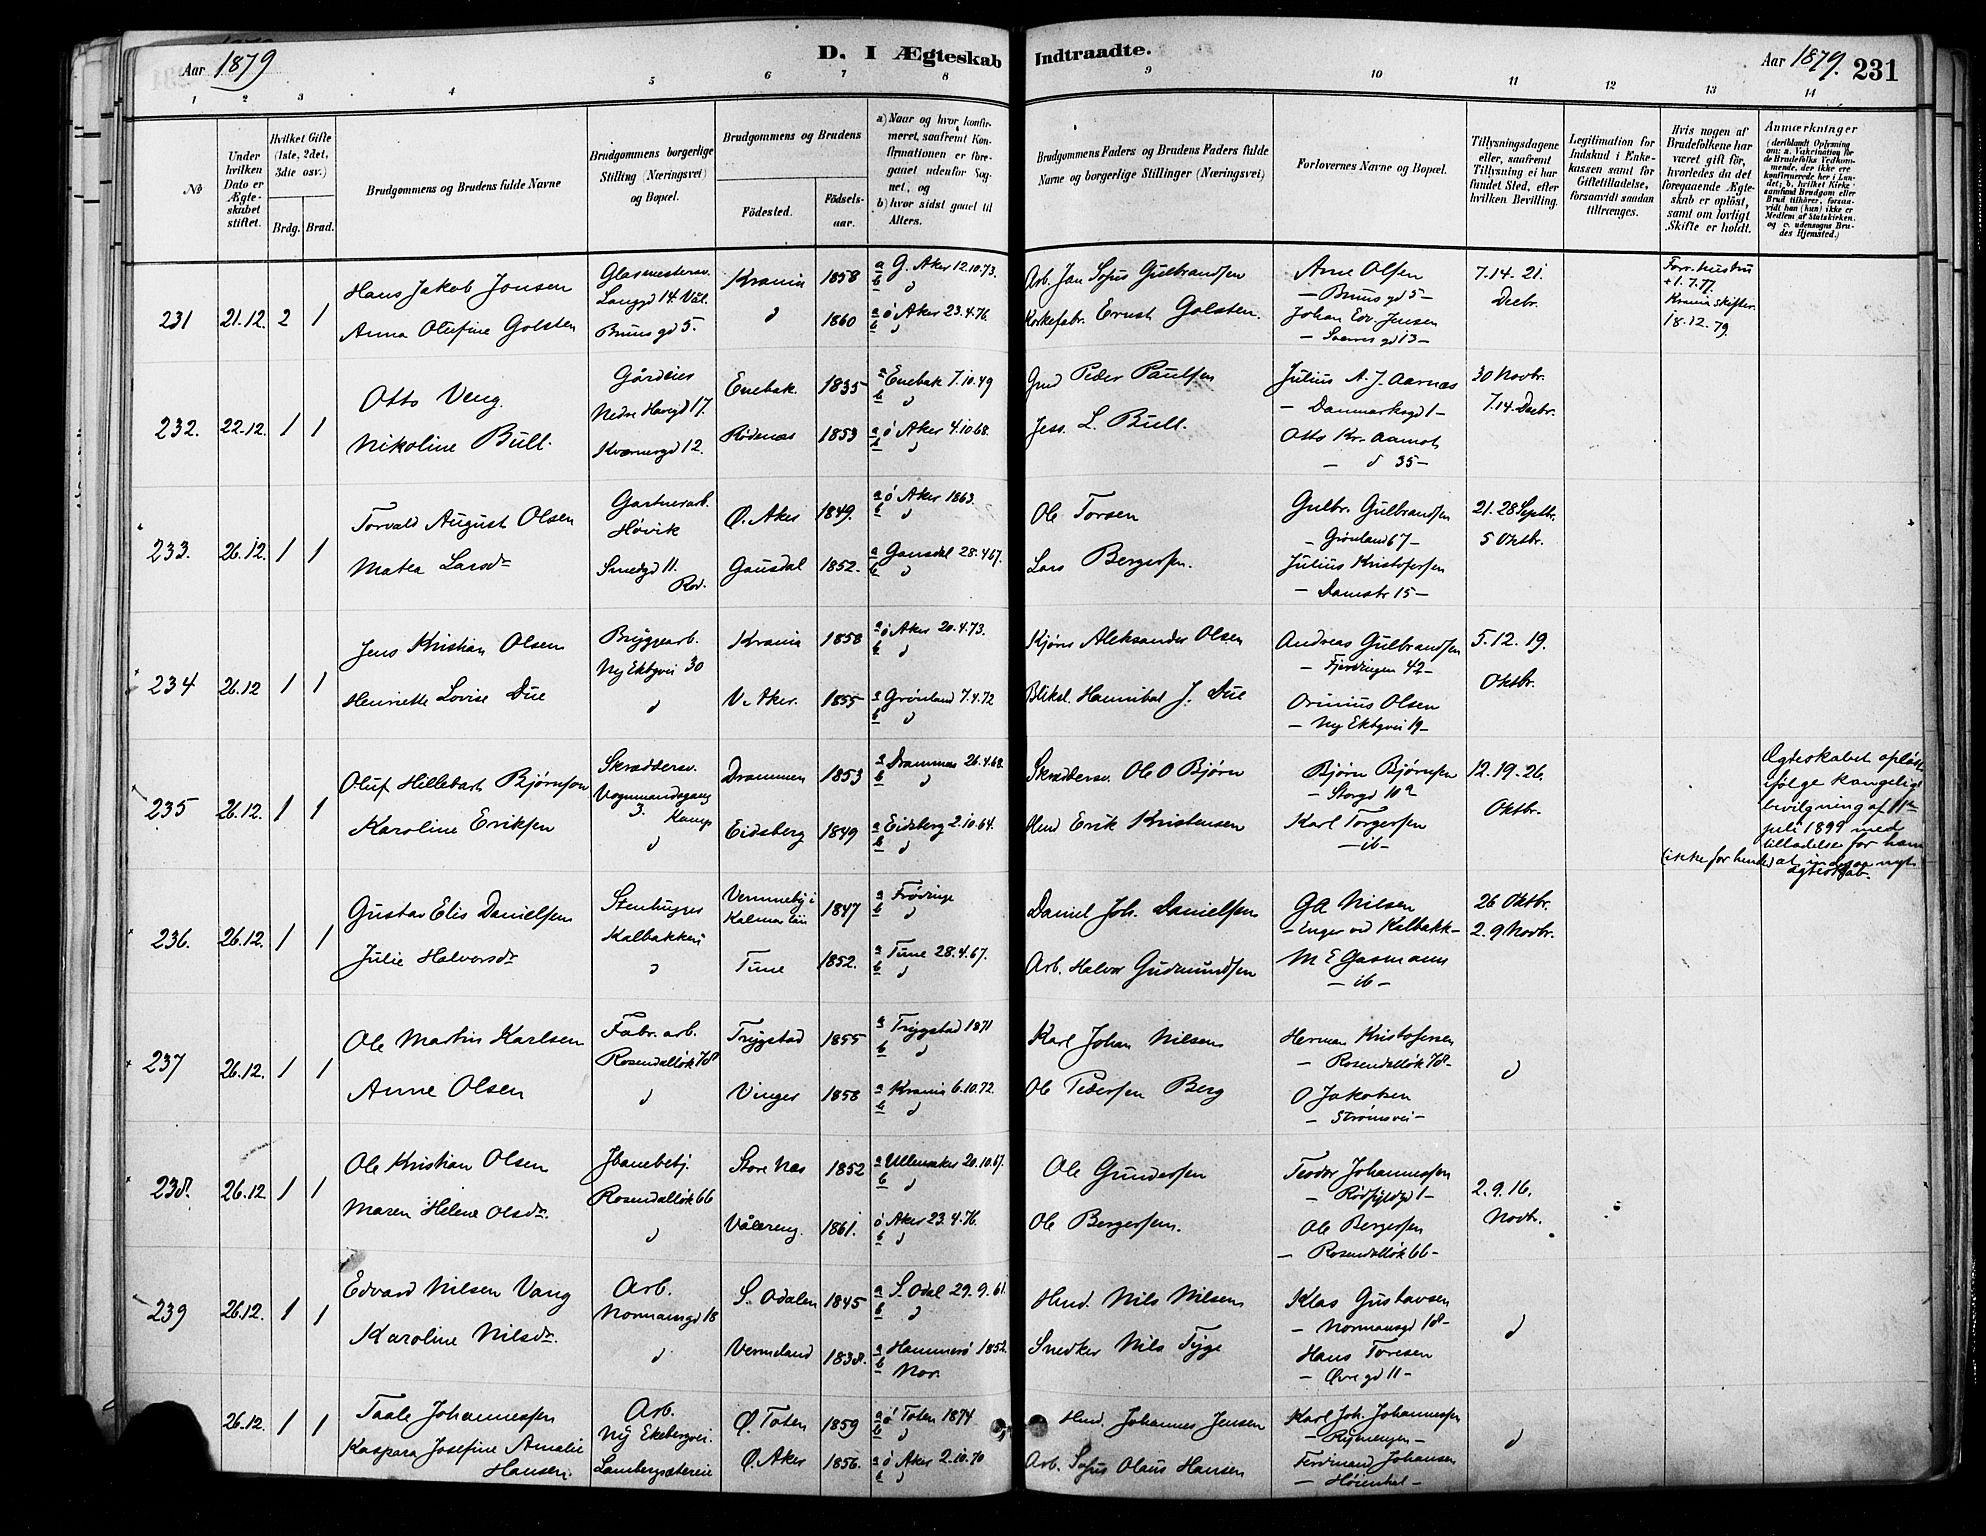 Aar 1879
D. I Ægteskab
Indtraadte.
Aar 1879.
231
1 2 3 4 5 6 7 8 9 10 11 12 13 14
No
Under hvilken Dato er Ægteskabet stiftet.
Hvilket Gifte (1ste, 2det, 3die osv.)
Brdg. Brud.
Brudgommens og Brudens fulde Navne
Brudgommens borgerlige Stilling (Næringsvei) og Bopæl.
Brudgommens og Brudens
Fødested.
Fødselsaar.
a) Naar og hvor konfirmeret, saafremt Konfirmationen er foregaaet udenfor Sognet, og
b) hvor sidst gaaet til Alters.
Brudgommens Faders og Brudens Faders fulde Navne og borgerlige Stillinger (Næringsvei)
Forlovernes Navne og Bopæl.
Tillysningsdagene eller, saafremt Tillysning ei har fundet Sted, efter hvilken Bevilling.
Legitimation for Indskud i Enkekassen samt for Giftetilladelse, forsaavidt saadan tiltrænges.
Hvis nogen af Brudefolkene har været gift før, hvorledes da det foregaaende Ægteskab er opløst, samt om lovligt Skifte er holdt.
Anmærkninger (deriblandt Oplysning om: a. Vakcination for de Brudefolks Vedkommende, der ikke ere konfirmerede her i Landet; b. hvilket Kirkesamfund Brudgom eller Brud tilhører, forsaavidt han (hun) ikke er Medlem af Statskirken, og c. udensogns Brudes Hjemsted.)
231 21.12. 2 1
Hans Jakob Jonsen
Glasmestersv. Langgd 14 Vål.
Krania 1858 a G. Aker 12.10.73. b d
Arb. Jan Sofus Gulbrandsen
Arne Olsen — Bruns gd 5 —
7.14.21. Decbr.
Forr. hustru + 1.7.77. Krania skifter. 18.12.79.
Anna Olufine Golsten
Bruns gd 5.
d 1860 a ø Aker 23.4.76. b d
Korkefabr. Ernst Golsten.
Johan Edv. Jensen
232. 22.12. 1 1
Otto Veng.
Gårdeier Nedre Havegd 17.
Enebak. 1835 a Enebak 7.10.49 b d
Gmd Peder Paulsen
Julius A. J. Aarnæs — Danmarksgd 1 —
30 Novbr. 7.14. Decbr.
Nikoline Bull.
Kværnergd 12.
Rødenæs 1853 a ø Aker 4.10.68. b d
Jess. L. Bull.
Otto Kr. Aamot — d 35 —
233. 26.12. 1 1
Torvald August Olsen
Gartnerarb. Høvik
Ø. Aker 1849. a ø Aker 1863. b d
Ole Torsen
Gulbr. Gulbrandsen — Grønland 67 —
21.28 Septbr. 5 Oktbr.
Matea Larsdr
Smedgd 11.
Gausdal 1852. a Gausdal 28.4.67. b d
Lars Bergersen.
Julius Kristofersen — Damstr 15 —
234 26.12 1 1
Jens Kristian Olsen
Bryggearb. Ny Ekbgvei 30
Krania 1858 a ø Aker 20.4.73. b d
Kjører Aleksander Olsen
Andreas Gulbrandsen — Fjerdingen 42 —
5.12.19. Oktbr.
Henriette Lovise Due
d
V. Aker. 1855 a Grønland 7.4.72 b d
Bliksl. Hannibal J. Due
Orinius Olsen — Ny Ekbgvei 19 —
235 26.12. 1 1
Oluf Hillebart Bjørnson
Skræddersv. Vognmandsgang 3. Kamp
Drammen 1853 a Drammen 26.4.68. b d
Skræddersv. Ole O Bjørn
Bjørn Bjørnsen — Storgd 10a
12.19.26. Oktbr.
Ægteskabet opløst ifølge kongelig bevilgning af 11te juli 1899 med tilladelse for ham (ikke for hende) at indgaa nyt ægteskab.
Karoline Eriksen
d
Eidsberg 1849 a Eidsberg 2.10.64. b d
Hmd Erik Kristensen
Karl Torgersen — ib —
236. 26.12. 1 1
Gustav Elis Danielsen
Stenhugger Kalbakken
Vemmeby i Kalmar län 1847 a Frødinge b d
Daniel Joh. Danielsen
GA Nilsen — Enger ved Kalbakk —
26 Oktbr. 2.9 Novbr.
Julie Halvorsdr
d
Tune 1852. a Tune 28.4.67. b d
Arb. Halvor Gudmundsen
M E Gasmann — ib —
237 26.12. 1 1
Ole Martin Karlsen
Fabr. arb. Rosendalløk 78
Trygstad 1855 a Trygstad 1871 b d
Karl Johan Nilsen
Herman Kristofersen — Rosendalløk 78 —
d
Anne Olsen
d
Vinger 1858 a Krania 6.10.72. b d
Ole Pedersen Berg
O Jakobsen — Strømsvei —
238. 26.12 1 1
Ole Kristian Olsen
Jbanebetj. Rosendalløk 66
Store Næs 1852 a Ullensaker 20.10.67. b d
Ole Gundersen
Teodor Johannessen
2.9.16. Novbr.
Maren Helene Olsdr.
d
Vålereng. 1861. ø Aker 23.4.76. b d
Ole Bergersen.
Ole Bergersen — Rosendalløk 66 —
239 26.12. 1 1
Edvard Nilsen Vang
Arb. Normansgd 18
S. Odalen 1845 a S. Odal 29.9.61 b d
Hmd. Nils Nilsen
Klas Gustavsen — Normansgd 18 —
d
Karoline Nilsdr.
d
Vermeland 1838. a Hammerø 1852. b Nor.
Snedker Nils Tyge
Hans Toresen — Øvregd 11 —
26.12. 1 1
Taale Johannessen
Arb. Ny Ekebergvei.
Ø. Toten 1859 a ø Toten 1874 b d
Hmd. Johannes Jensen
Karl Joh. Johannessen
d
Kaspara Josefine Amalie Hansen
Lambergsætereie
Ø. Aker 1856. a ø Aker 2.10.70 b d
Arb. Sofus Olaus Hansen
Ferdinand Johansen — Høienhal —